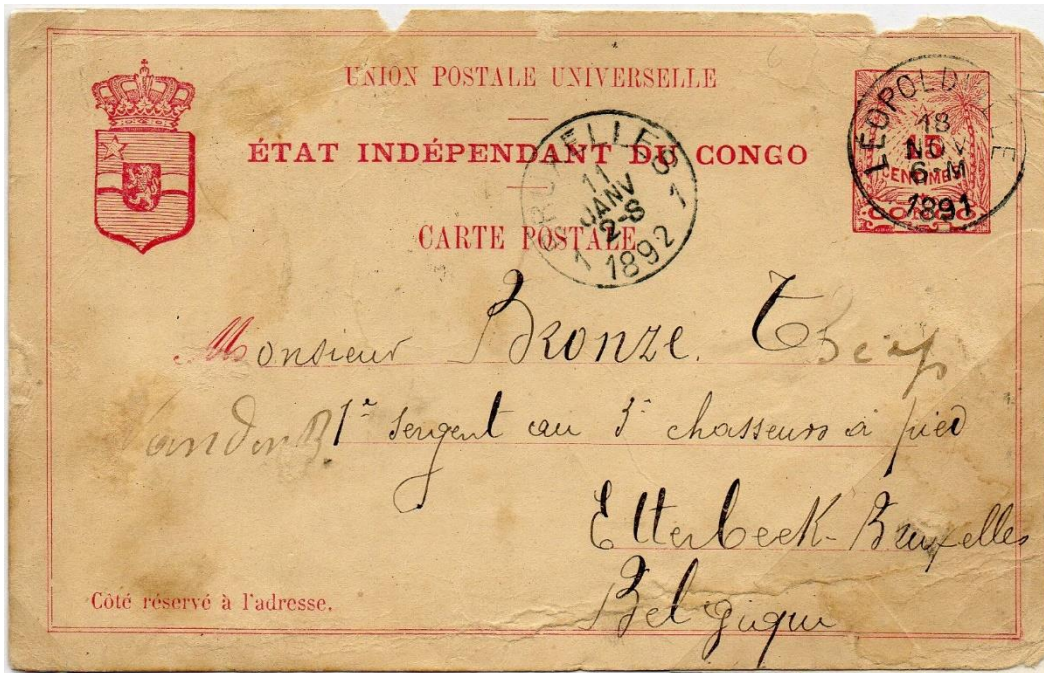 UNION POSTALE UNIVERSELLE
ÉTAT INDÉPENDANT DU CONGO
CARTE POSTALE
LEOPOLDVILLE
18
NOV
6-M
1891
15
CENTIMES
CONGO
BRUXELLES
11
JANV
2-8
1 1892 1
Monsieur Bronze.
1e sergent au 3e chasseurs à pied
Etterbeek-Bruxelles
Belgique
Côté réservé à l'adresse.